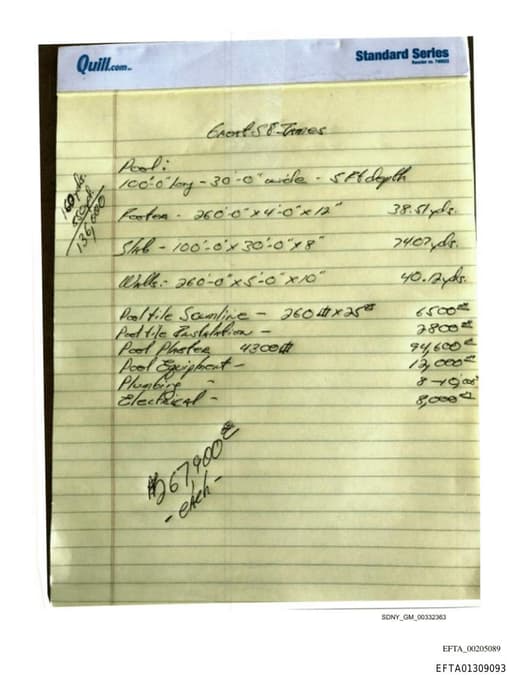 Quill.com
Standard Series
Great St James
Pool:
100'-0" long - 30'-0" wide - 5 Ft depth
160 yds.
136,000
Footer - 260'-0" x 4'-0" x 12" 38.51 yds.
Slab - 100'-0" x 30'-0" x 8" 7407 yds.
Walls: - 260'-0" x 5'-0" x 10" 40.12 yds.
Pool tile Scumline - 260 # x 25 00 6500 00
Pool tile Installation - 2800 00
Pool Plaster 4300 # 94,600 00
Pool Equipment - 12,000 00
Plumbing - 8 - 10,000
Electrical - 8,000 00
$267,900 00
- each -
SDNY_GM_00332363
EFTA_00205089
EFTA01309093